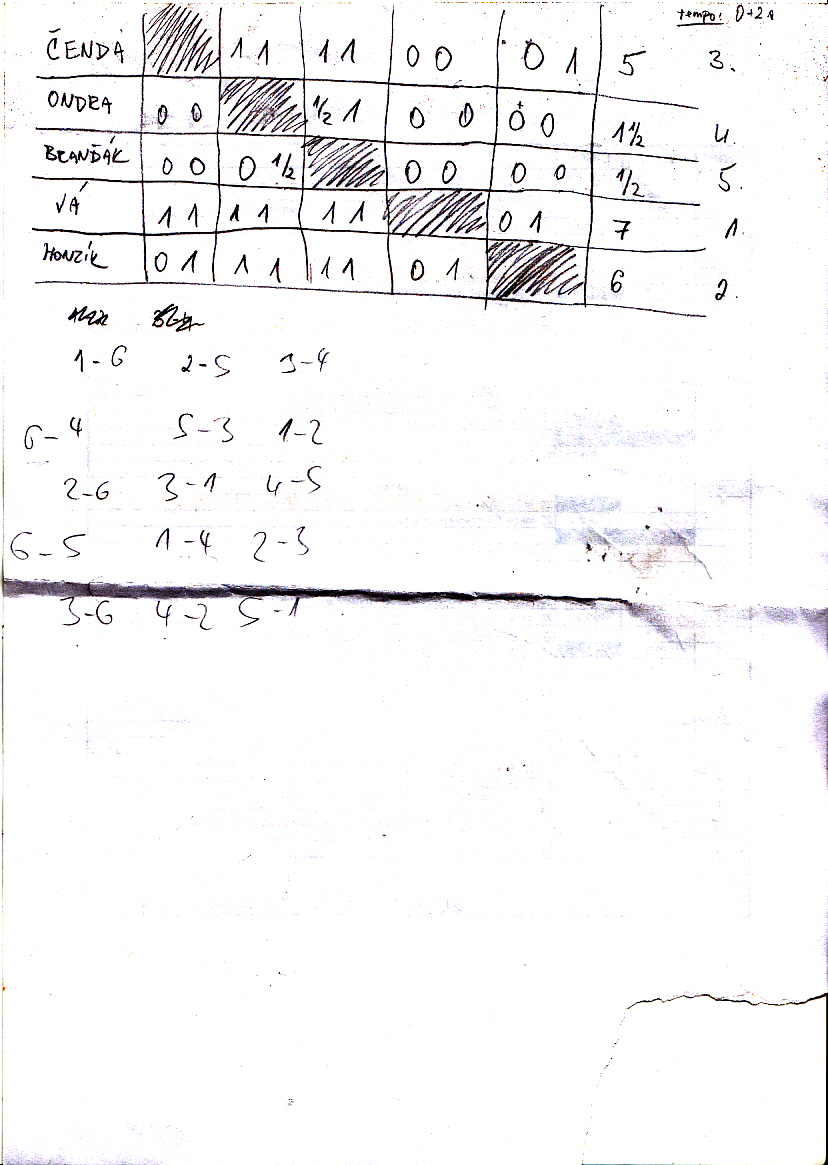 tempo: 0+2s
ČENDA 11 11 00 01 5 3.
ONDRA 00 ½1 00 00 1½ 4.
BRANĎÁK 00 0½ 00 00 ½ 5.
VÁ 11 11 11 01 7 1.
HONZÍK 01 11 11 01 6 2.
1-6 2-5 3-4
6-4 5-3 1-2
2-6 3-1 4-5
6-5 1-4 2-3
3-6 4-2 5-1